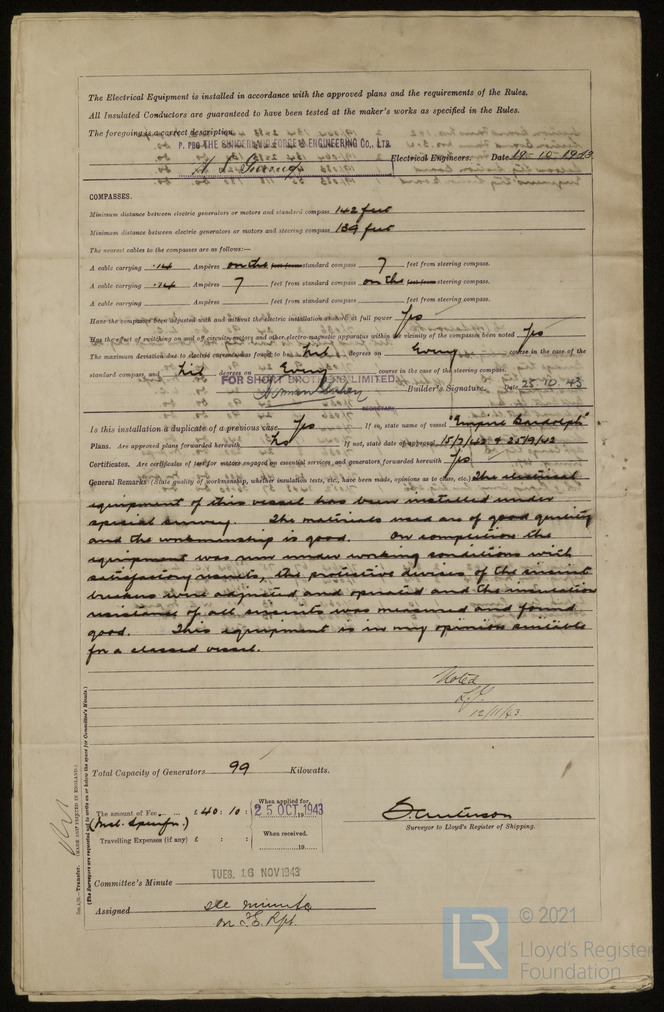 The Electrical Equipment is installed in accordance with the approved plans and the requirements of the Rules.
All Insulated Conductors are guaranteed to have been tested at the maker's works as specified in the Rules.
The foregoing is a correct description.
P. PRO THE SUNDERLAND FORGE & ENGINEERING Co., LTD.
Electrical Engineers. Date 19-10-1943.
COMPASSES.
Minimum distance between electric generators or motors and standard compass 142 feet
Minimum distance between electric generators or motors and steering compass 139 feet
The nearest cables to the compasses are as follows:—
A cable carrying .14 Ampères on the feet from standard compass 7 feet from steering compass.
A cable carrying .14 Ampères 7 feet from standard compass on the feet from steering compass.
A cable carrying Ampères feet from standard compass feet from steering compass.
Have the compasses been adjusted with and without the electric installation at work at full power Yes
Has the effect of switching on and off circuits, motors and other electro-magnetic apparatus within the vicinity of the compasses been noted Yes
The maximum deviation due to electric currents was found to be Nil degrees on Every course in the case of the
standard compass and Nil degrees on Every course in the case of the steering compass.
FOR SHORT BROTHERS LIMITED.
Builder's Signature. Date 25.10.43
SECRETARY.
Is this installation a duplicate of a previous case Yes If so, state name of vessel "Empire Bardolph"
Plans. Are approved plans forwarded herewith No If not, state date of approval 15/7/42 & 25/9/42
Certificates. Are certificates of test for motors engaged on essential services, and generators forwarded herewith Yes
General Remarks (State quality of workmanship, whether insulation tests, etc., have been made, opinions as to class, etc.) The electrical
equipment of this vessel has been installed under
special survey. The materials used are of good quality
and the workmanship is good. On completion the
equipment was run under working conditions with
satisfactory results, the protective devices of the circuit
breakers were adjusted and operated and the insulation
resistance of all circuits was measured and found
good. This equipment is in my opinion suitable
for a classed vessel.
Noted
12/11/43
Total Capacity of Generators 99 Kilowatts.
The amount of Fee £ 40 : 10 : When applied for, 25 OCT 1943
Travelling Expenses (if any) £ : : When received, 19
Surveyor to Lloyd's Register of Shipping.
Committee's Minute TUES. 16 NOV 1943
Assigned see minute
on F.E. Rpt.
(The Surveyors are requested not to write on or below the space for Committee's Minute.)
Transfer. (MADE AND PRINTED IN ENGLAND.)
LR
© 2021
Lloyd's Register
Foundation